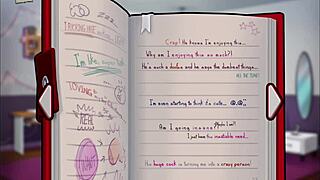 ZZZ
I'm like,
TOYING
REAL
Crap! He knows I'm enjoying this...
Why am I enjoying this so much?!
He's such a dork and he says the dumbest things...
ALL THE TIME!
I'm even starting to think it's cute... @.@;;
Maybe I am?
Am I going insane??
I just have this insatiable need...
His huge cock is turning me into a crazy person!